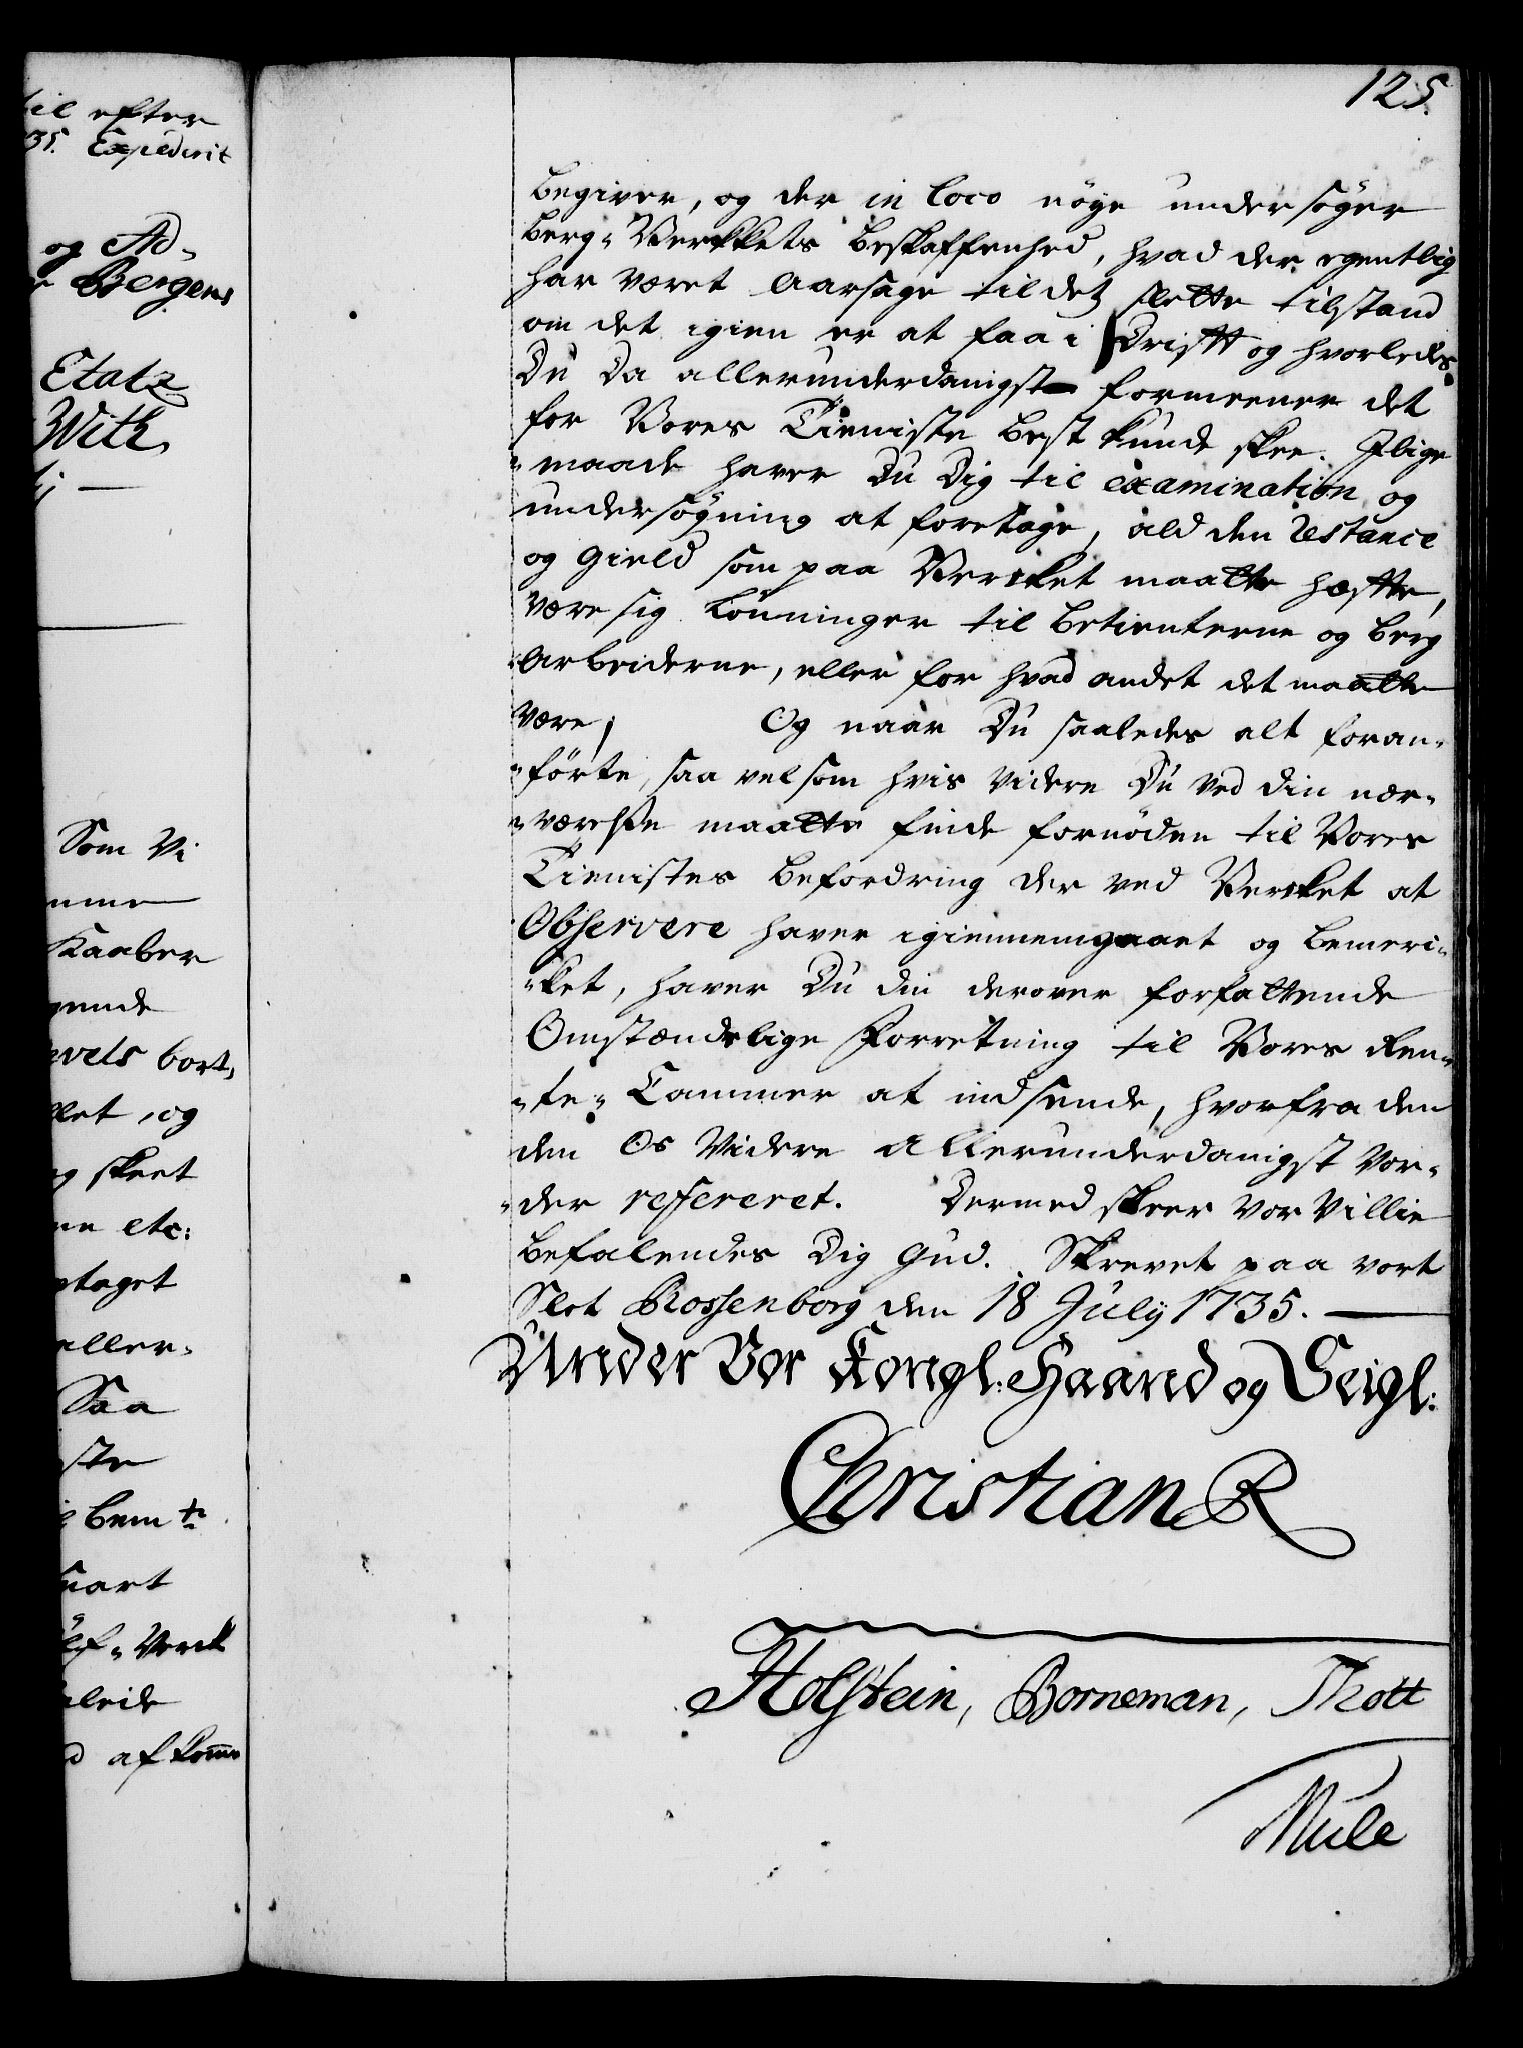 til efter
35. Expederit
og Ad-
Bergens
Etatz
With
Som Vi
Kaaber
gende
vels bort,
let, og
skeet
etc:
taget
aller-
Saa
ste
bem.te
snart
Verck
leide
af komme
125.
begiver, og der in loco nöye undersöger
Berg-Verckets beskaffenhed, hvad der egentlig
har været Aarsage til detz slette tilstand
om det igien er at faa i Drifft og hvorledes
Du da allerunderdanigst formeener det
for Vores Tieniste best kunde skee. Jlige
-maade haver Du Dig til examination og
undersögning at foretage, ald den restance
og Gield som paa Vercket maatte hæffte,
være sig Lönninger til Betienterne og Berg
-Arbeiderne, eller for hvad andet det maatte
være; Og naar Du saaledes alt foran-
-förte, saa vel som hvis videre Du ved din nær-
-værelse maatte finde fornöden til Vores
Tienistes befordring der ved Vercket at
Observere haver igiennemgaaet og bemer-
-ket, haver Du din derover forfattende
Omstændelige Forretning til Vores Ren-
-te-Cammer at indsende, hvorfra den
den Os videre allerunderdanigst vor-
-der refereret. Dermed skeer vor Villie
Befalendes Dig Gud. Skrevet paa vort
Slot Rossenborg den 18 July 1735.
Under Vor Kongl: Haand og Seigl:
Christian R
Holstein, Borneman, Thott
Mule